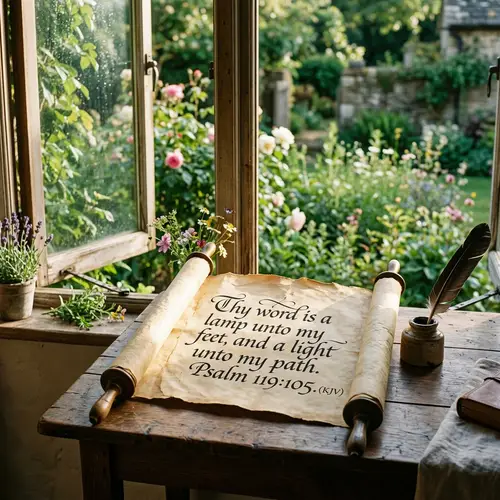 Thy word is a
lamp unto my
feet, and a light
unto my path.
Psalm 119:105. (KJV)